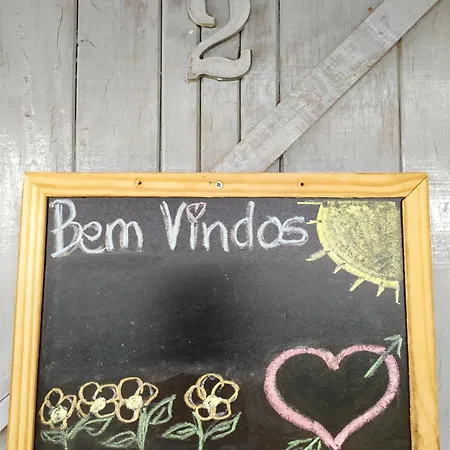 2
Bem Vindos